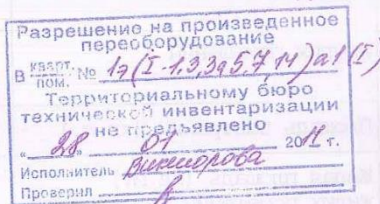 Разрешение на произведенное
переоборудование
В кварт. пом. № 1э (I-1,3,3а,5,7,14) а1 (I)
Территориальному бюро
технической инвентаризации
не предъявлено
„28" 01 2011 г.
Исполнитель Викторова
Проверил